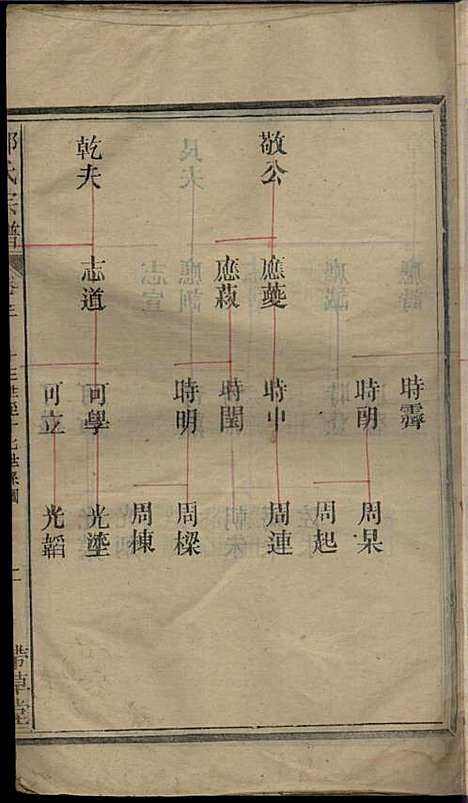 敬公
乾夫
應夔
應蓺
志道
時霽
時明
時中
時閏
時明
可學
可立
周杲
周起
周連
周樑
周棟
光塗
光韜
氏宗譜
帶草堂